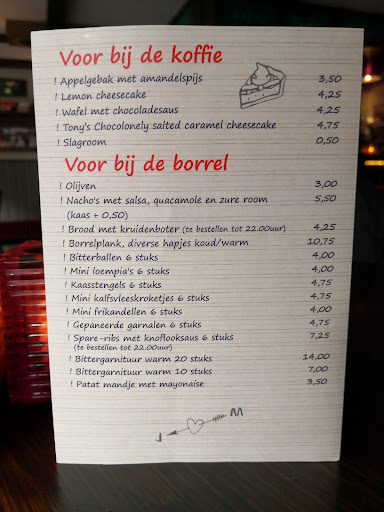 Voor bij de koffie
! Appelgebak met amandelspijs 3,50
! Lemon cheesecake 4,25
! Wafel met chocoladesaus 4,25
! Tony's Chocolonely salted caramel cheesecake 4,75
! Slagroom 0,50
Voor bij de borrel
! Olijven 3,00
! Nacho's met salsa, quacamole en zure room 5,50
(kaas + 0,50)
! Brood met kruidenboter (te bestellen tot 22.00uur) 4,25
! Borrelplank, diverse hapjes koud/warm 10,75
! Bitterballen 6 stuks 4,00
! Mini loempia's 6 stuks 4,00
! Kaasstengels 6 stuks 4,75
! Mini kalfsvleeskroketjes 6 stuks 4,75
! Mini frikandellen 6 stuks 4,00
! Gepaneerde garnalen 6 stuks 4,75
! Spare-ribs met knoflooksaus 6 stuks 7,25
(te bestellen tot 22.00uur)
! Bittergarnituur warm 20 stuks 14,00
! Bittergarnituur warm 10 stuks 7,00
! Patat mandje met mayonaise 3,50
J M